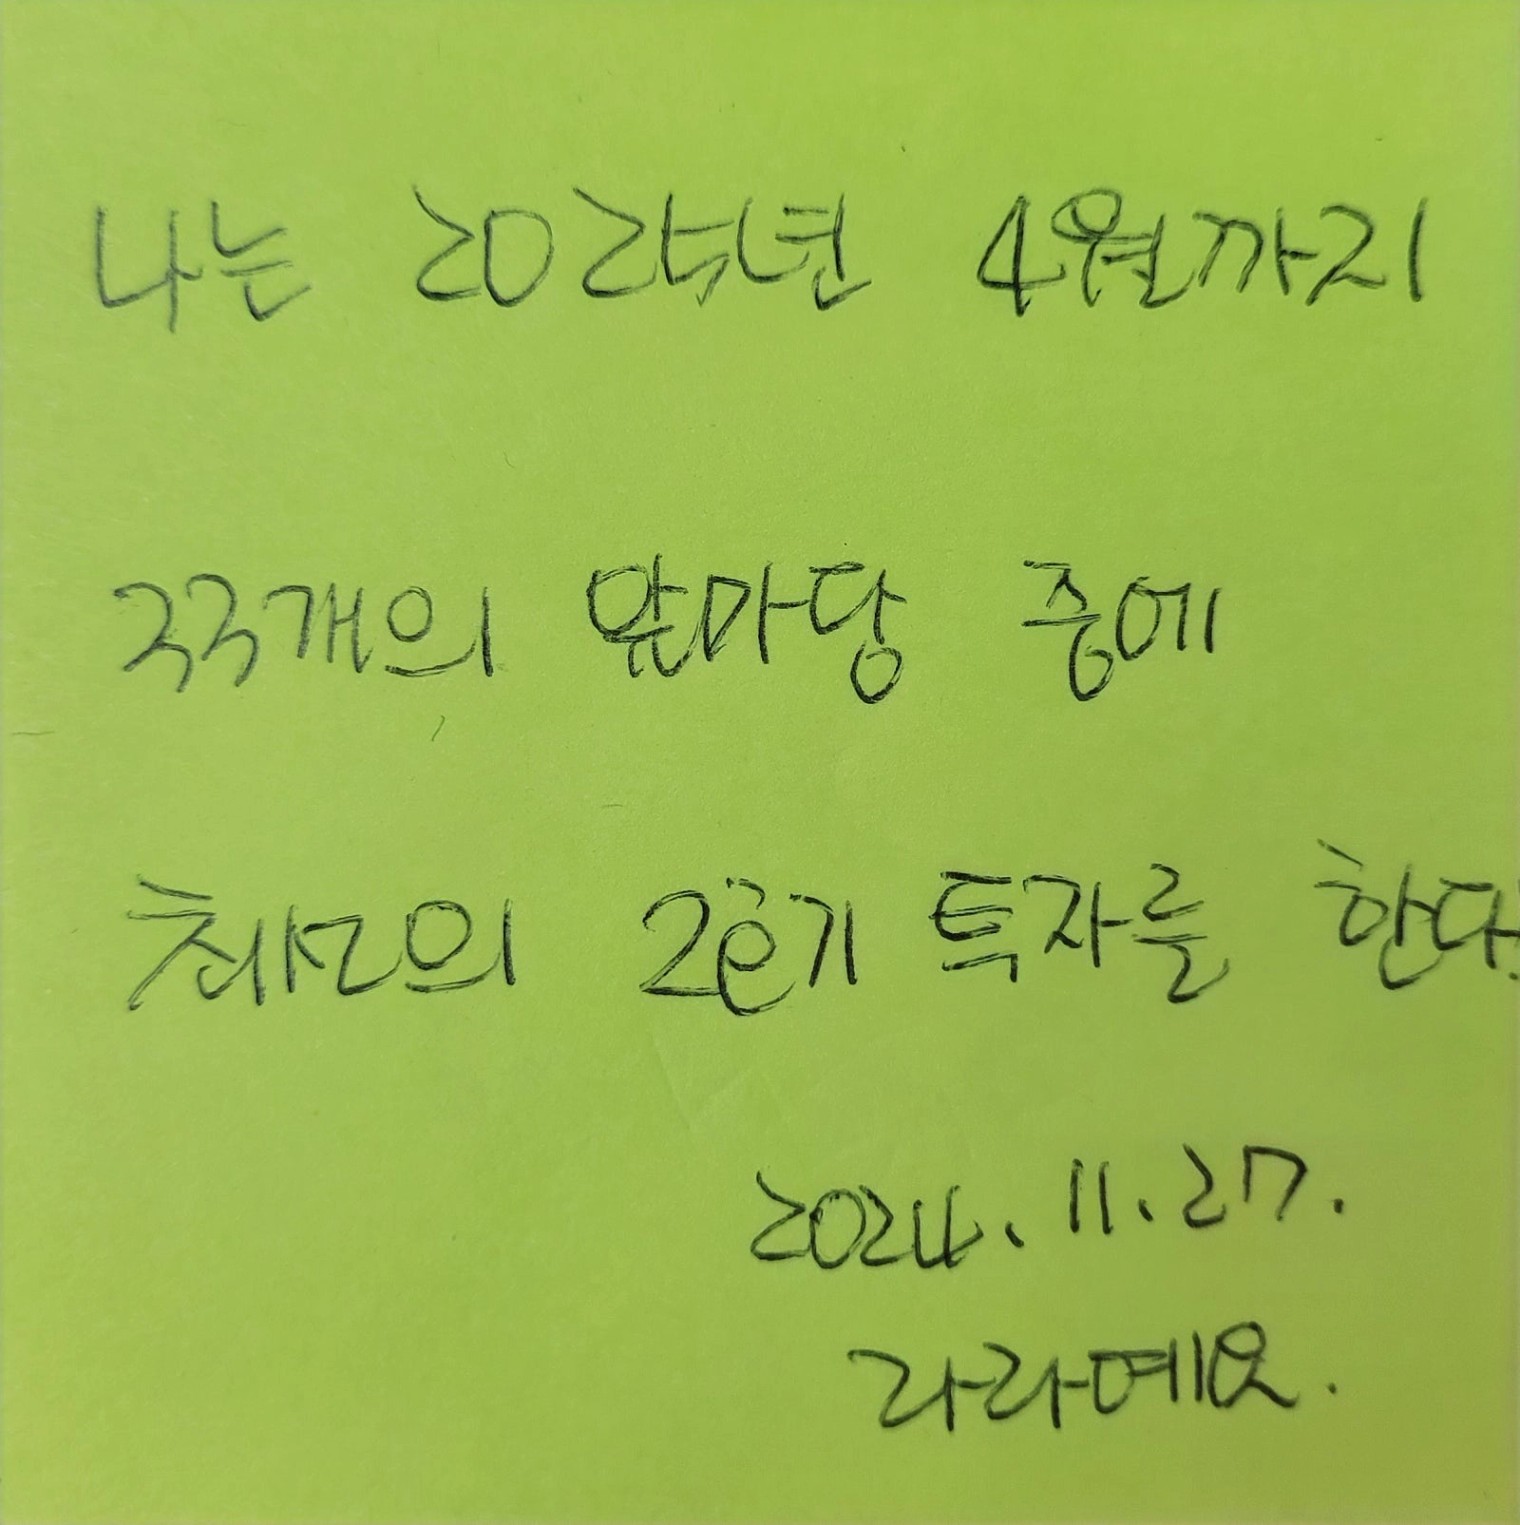 나는 2025년 4월까지
33개의 앞마당 중에
최고의 2호기 투자를 한다.
2024. 11. 27.
라라예요.